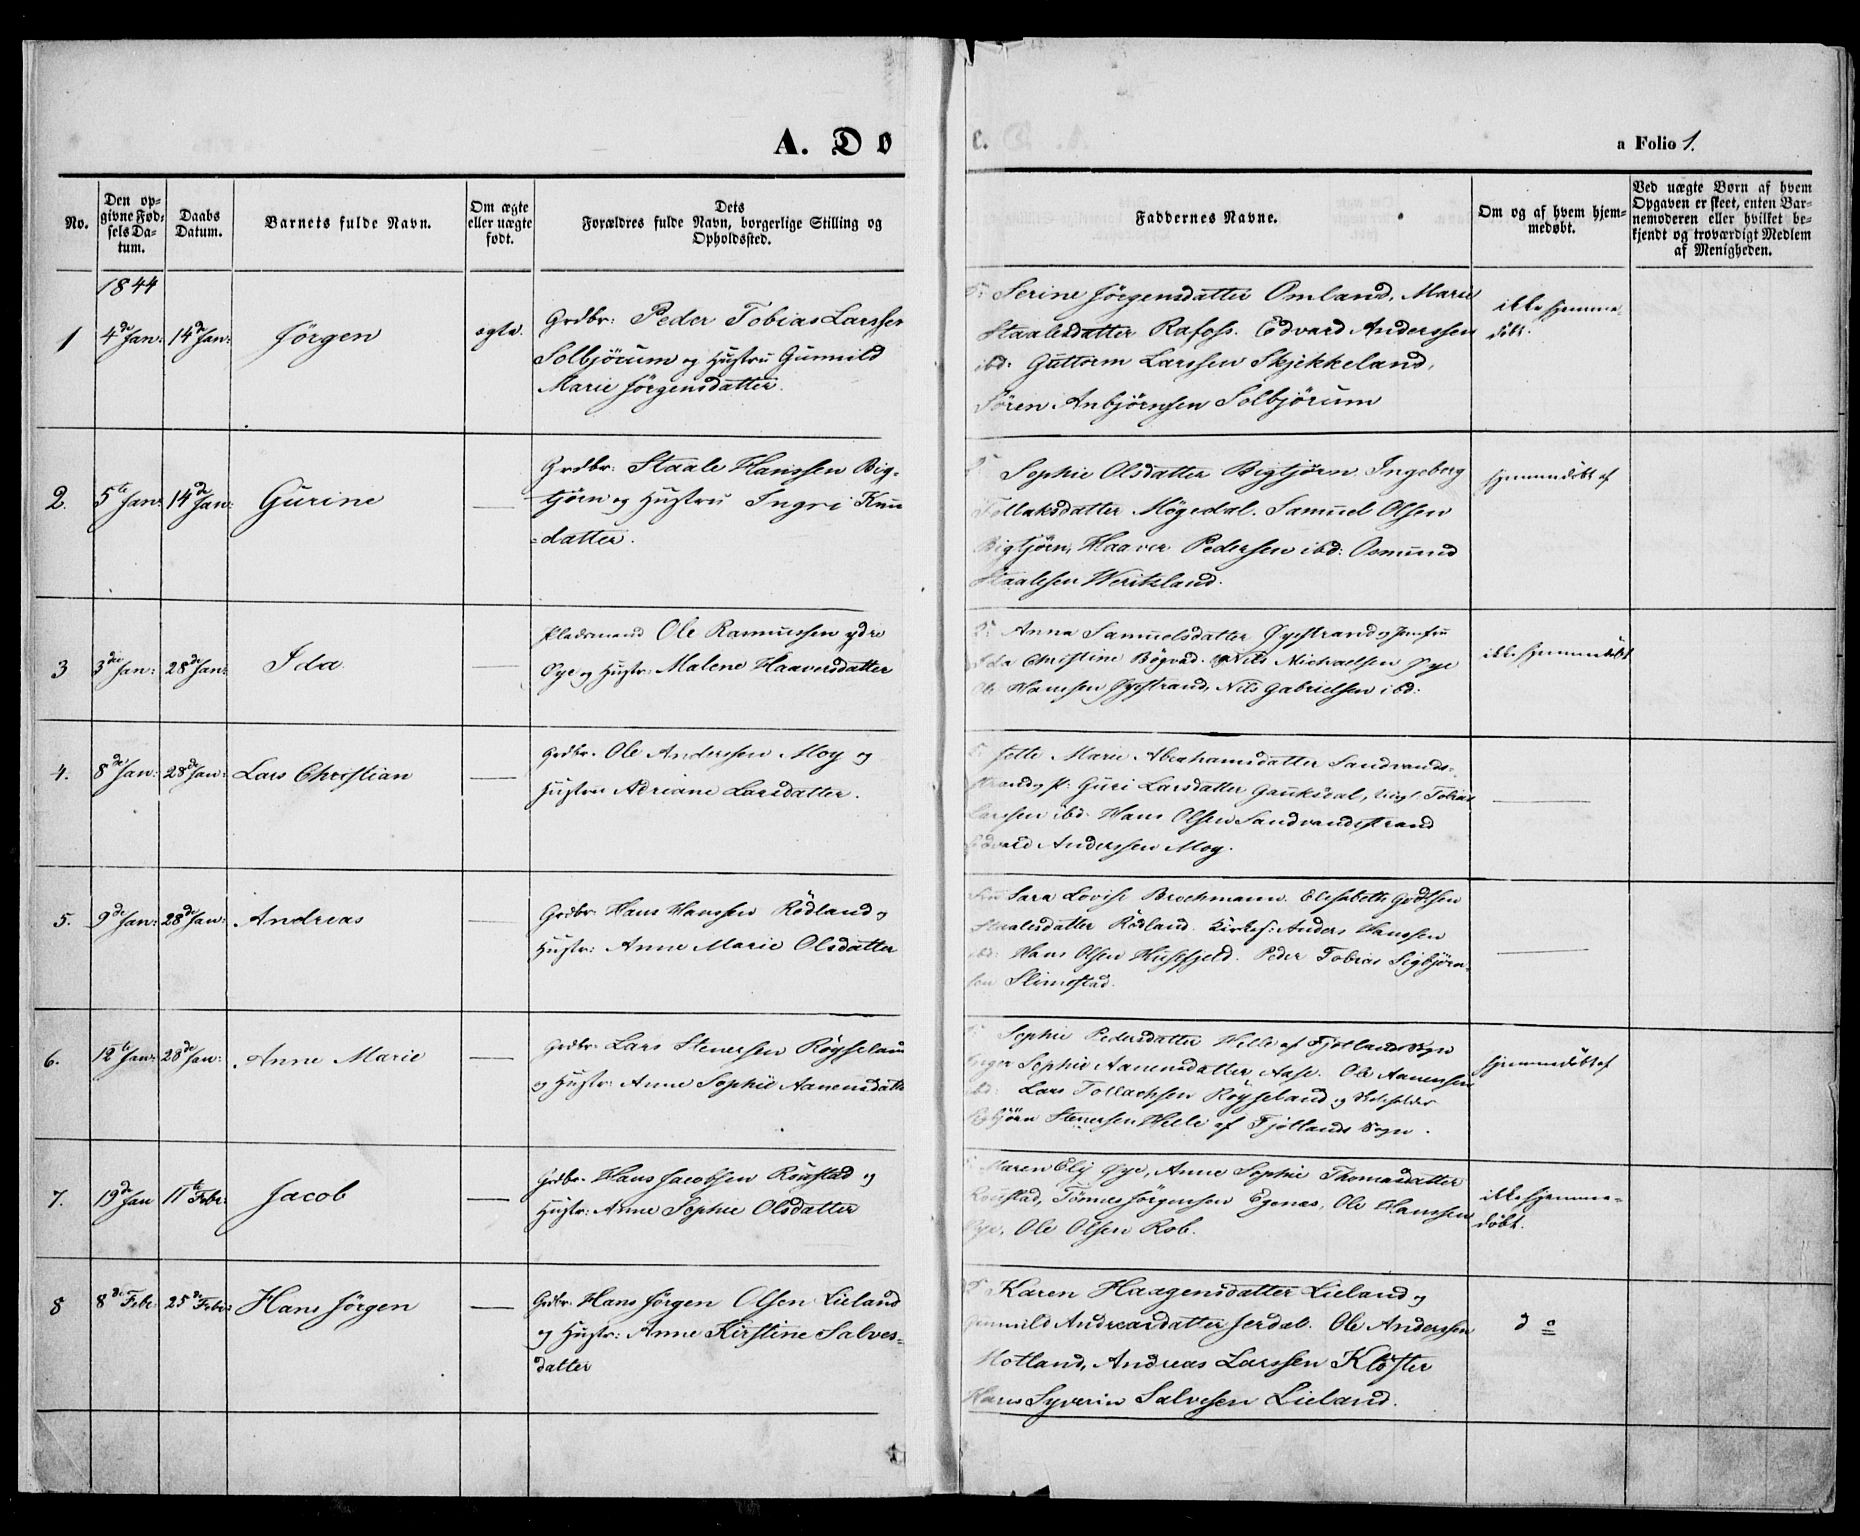 A. Dø
e.
a Folio 1.
No.
Den op-
givne Fød-
sels Da-
tum.
Daabs
Datum.
Barnets fulde Navn.
Om ægte
eller uægte
født.
Dets
Forældres fulde Navn, borgerlige Stilling og
Opholdssted.
Faddernes Navne.
Om og af hvem hjem-
medøbt.
Ved uægte Børn af hvem
Opgaven er skeet, enten Bar-
nemoderen eller hvilket be-
kjendt og troværdigt Medlem
af Menigheden.
1844
1
4de Jan:
14de Jan:
Jörgen
ægte.
Grdbr: Peder Tobias Larssen
Solbjörum og Hustru Gunnild
Marie Jörgensdatter.
Serine Jörgensdatter Omland, Marie
Staalesdatter Rafoss. Edvard Anderssen
ibd: Guttorm Larssen Skjekkeland,
Sören Anbjörnsen Solbjörum
ikke hjemme-
döbt.
2.
5te Jan:
14de Jan:
Gurine
Grdbr: Staale Hanssen Big-
tjörn og Hustru Ingri Knu
datter.
Sophie Olsdatter Bigtjörn Ingeborg
Tollaksdatter Mögedal. Samuel Olsen
Bigtjörn, Haaver Pedersen ibd: Osmund
Staalesen
hjemmedöbt af
3
3die Jan:
28de Jan:
Ida
Pladsmand Ole Rasmussen ydre
Øye og Hustr: Malene Haaversdatter
Anna Samuelsdatter Øyestrand og Jomfru
Ida Christine Bögvad. Nils Michaelsen Øye
Ole Hanssen Øyestrand, Nils Gabrielsen ibd:
ikke hjemmedöbt
4.
8de Jan:
28de Jan:
Lars Christian
Grdbr. Ole Anderssen Moy og
Hustru Adriane Larsdatter.
Jette Marie Abrahamsdatter Sandvands-
strand, Guri Larsdatter Gauksdal, Tobias
Larssen ibd: Hans Olsen Sandvandstrand
Edvard Anderssen Moy.
5.
9de Jan:
28de Jan:
Andreas
Grdbr. Hans Hanssen Rödland og
Hustr: Anne Marie Olsdatter
Sara Lovise Brochmann. Elisabeth
Staalesdatter Rödland. Kirkes: Anders Hanssen
ibd: Hans Olsen. Peder Tobias Sigbjörn-
sen Slimestad.
6.
12te Jan:
28de Jan:
Anne Marie
Grdbr. Lars Stenersen Röyseland
og Hustr: Anne Sophie Aanensdatter
Sophie Pedersdatter Helle af Fjotlands Sogn
Inger Sophie Aanensdatter Aase. Ole Aanensen
ibd: Lars Tollachsen Röyseland og
Sigbjörn Stenersen Helle af Fjotlands Sogn.
hjemmedöbt af
7.
19de Jan
11te Febr:
Jacob
Grdbr. Hans Jacobsen Röistad og
Hustr: Anne Sophie Olsdatter
Maren Elij Øye, Anne Sophie Thomasdatter
Röistad, Tönnes Jörgensen Egenæs, Ole Hanssen
Øye, Ole Olsen Rob.
ikke hjemme-
döbt.
8
8de Febr:
25de Febr:
Hans Jörgen
Grdbr: Hans Jörgen Olsen Lieland
og Hustr: Anne Kirstine Salves-
datter
Karen Haagensdatter Lieland og
Gunnild Andreasdatter Jerdal. Ole Anderssen
Motland, Andreas Larssen Kloster
Hans Syverin Salvesen Lieland.
do